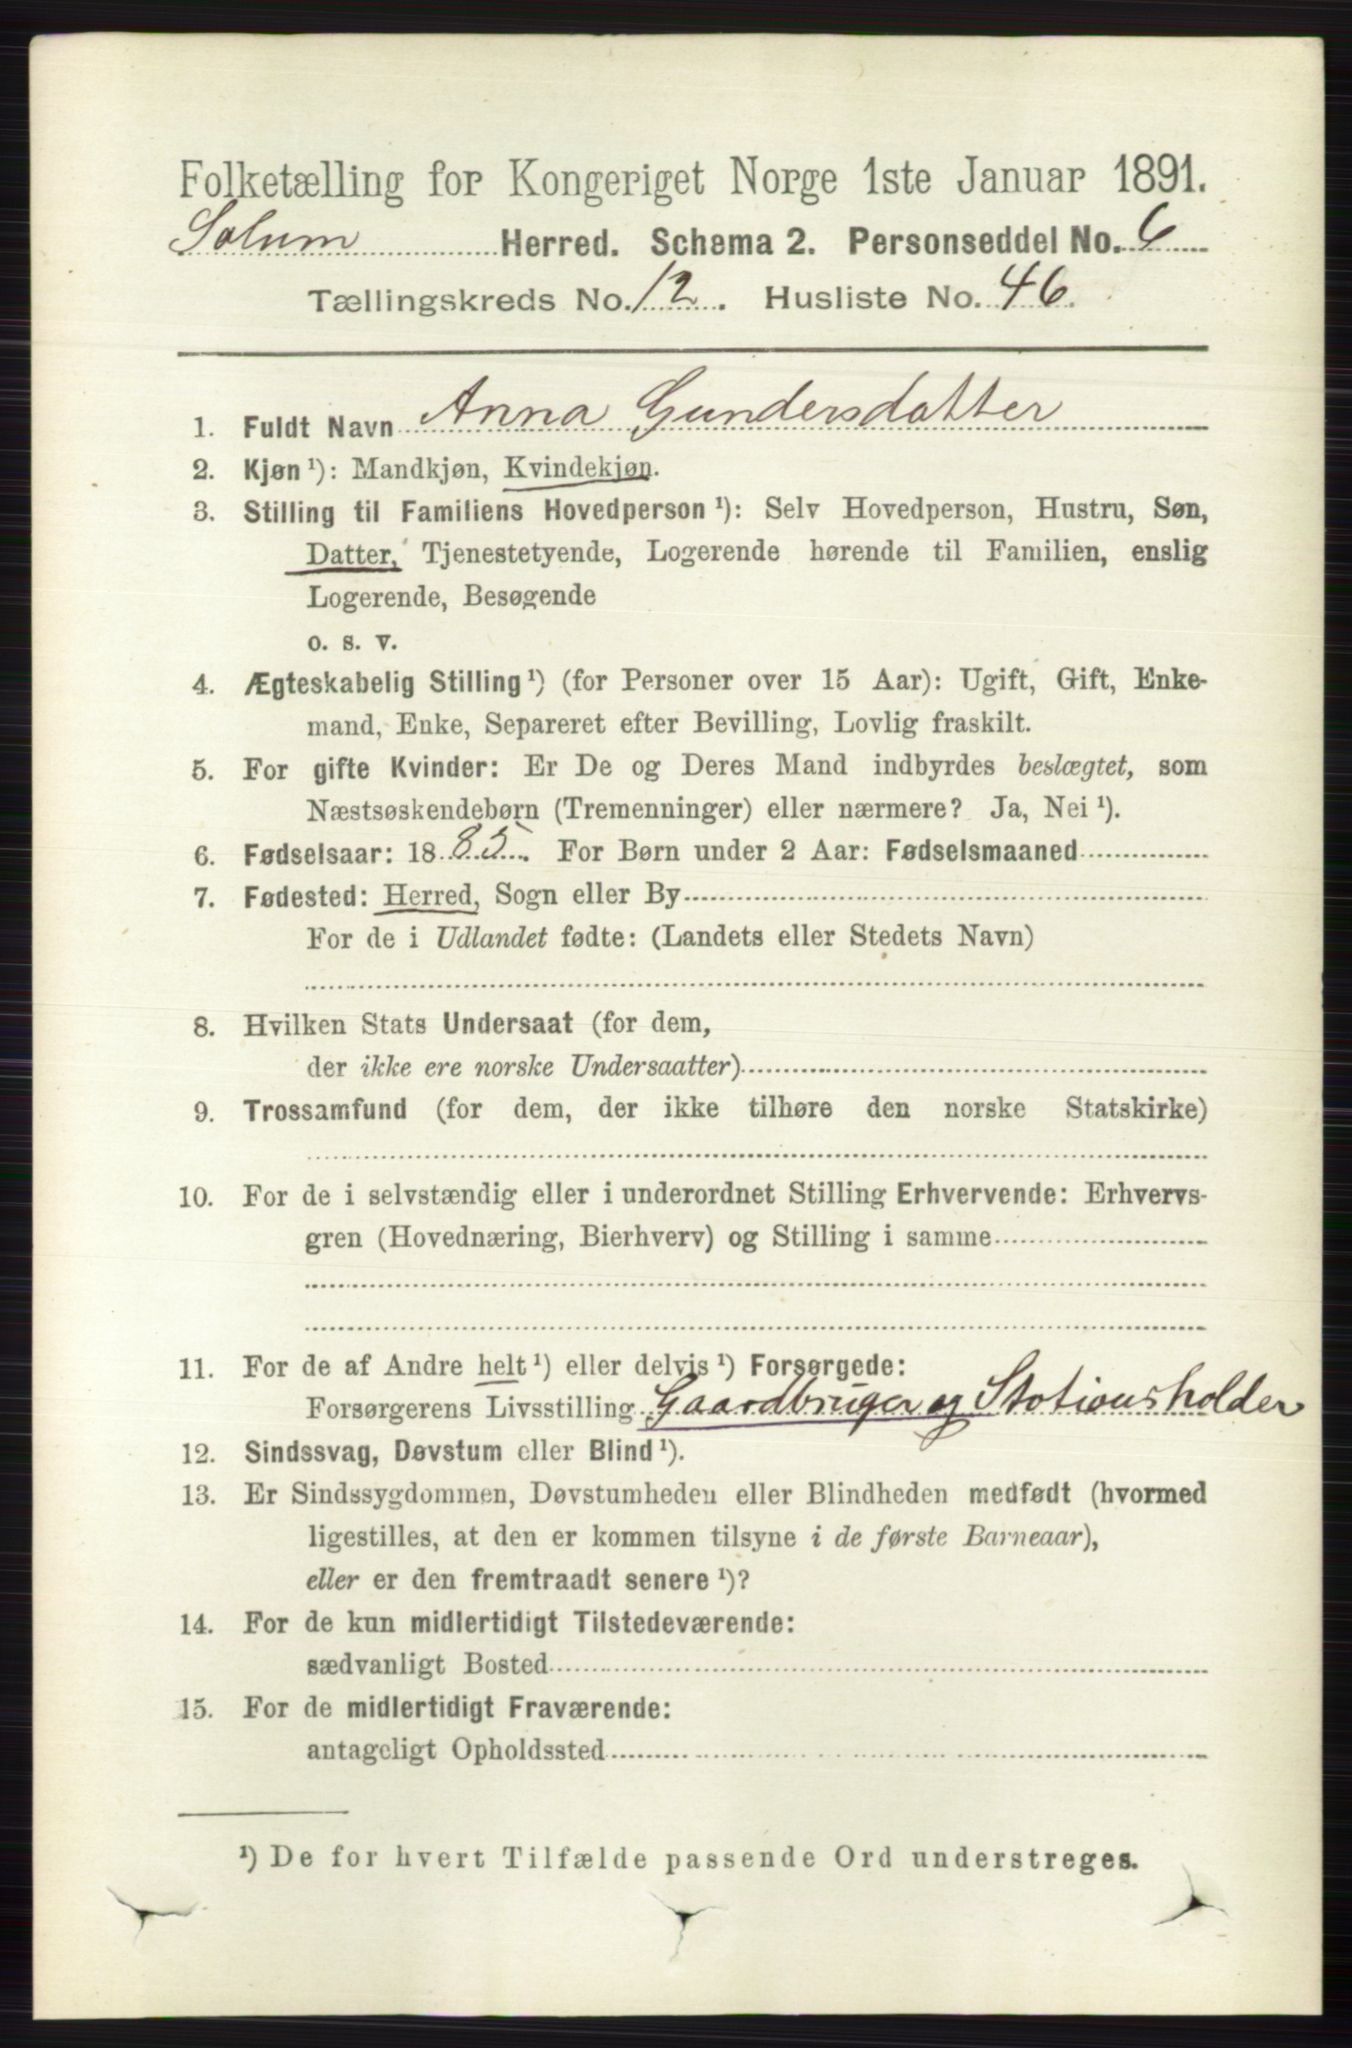 Folketælling for Kongeriget Norge 1ste Januar 1891.
Solum Herred. Schema 2. Personseddel No. 6
Tællingskreds No. 12. Husliste No. 46.
1. Fuldt Navn Anna Gundersdatter
2. Kjøn ¹): Mandkjøn, Kvindekjøn.
3. Stilling til Familiens Hovedperson ¹): Selv Hovedperson, Hustru, Søn,
Datter, Tjenestetyende, Logerende hørende til Familien, enslig
Logerende, Besøgende
o. s. v.
4. Ægteskabelig Stilling ¹) (for Personer over 15 Aar): Ugift, Gift, Enke-
mand, Enke, Separeret efter Bevilling, Lovlig fraskilt.
5. For gifte Kvinder: Er De og Deres Mand indbyrdes beslægtet, som
Næstsøskendebørn (Tremenninger) eller nærmere? Ja, Nei ¹).
6. Fødselsaar: 1885. For Børn under 2 Aar: Fødselsmaaned
7. Fødested: Herred, Sogn eller By
For de i Udlandet fødte: (Landets eller Stedets Navn)
8. Hvilken Stats Undersaat (for dem,
der ikke ere norske Undersaatter)
9. Trossamfund (for dem, der ikke tilhøre den norske Statskirke)
10. For de i selvstændig eller i underordnet Stilling Erhvervende: Erhvervs-
gren (Hovednæring, Bierhverv) og Stilling i samme
11. For de af Andre helt ¹) eller delvis ¹) Forsørgede:
Forsørgerens Livsstilling Gaardbruger og Stationsholder
12. Sindssvag, Døvstum eller Blind ¹).
13. Er Sindssygdommen, Døvstumheden eller Blindheden medfødt (hvormed
ligestilles, at den er kommen tilsyne i de første Barneaar),
eller er den fremtraadt senere ¹)?
14. For de kun midlertidigt Tilstedeværende:
sædvanligt Bosted
15. For de midlertidigt Fraværende:
antageligt Opholdssted
¹) De for hvert Tilfælde passende Ord understreges.